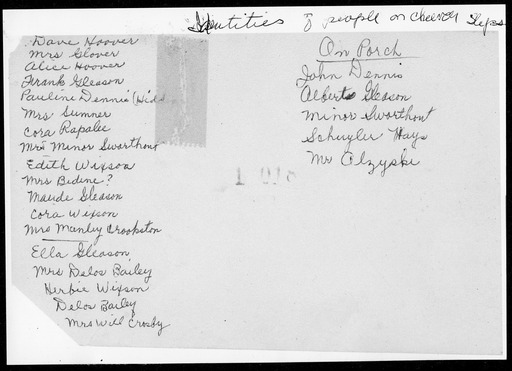 Identities of people on Church Steps
Dave Hoover
Mrs Glover
Alice Hoover
Frank Gleason
Pauline Dennis (Hid
Mrs Sumner
Cora Rapalee
Mrs Minor Swarthout
Edith Wixson
Mrs Bidine?
Maude Gleason
Cora Wixson
Mrs Manley Crookston
Ella Gleason
Mrs Delos Bailey
Herbie Wixson
Delos Bailey
Mrs Will Crosby
On Porch
John Dennis
Albert Gleason
Minor Swarthout
Schuyler Hays
Mr Olzyski